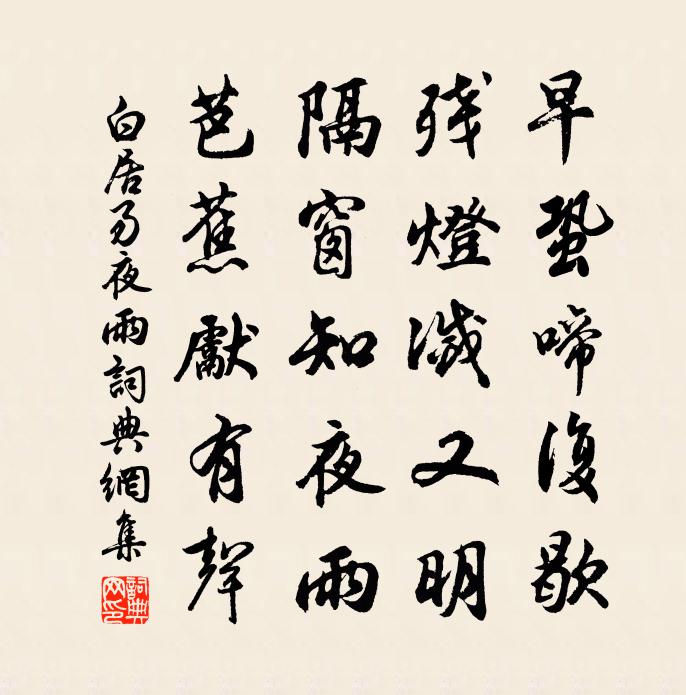 早蛩啼復歇
残燈滅又明
隔窗知夜雨
芭蕉獻有聲
白居易夜雨詞典網集
詞典網印